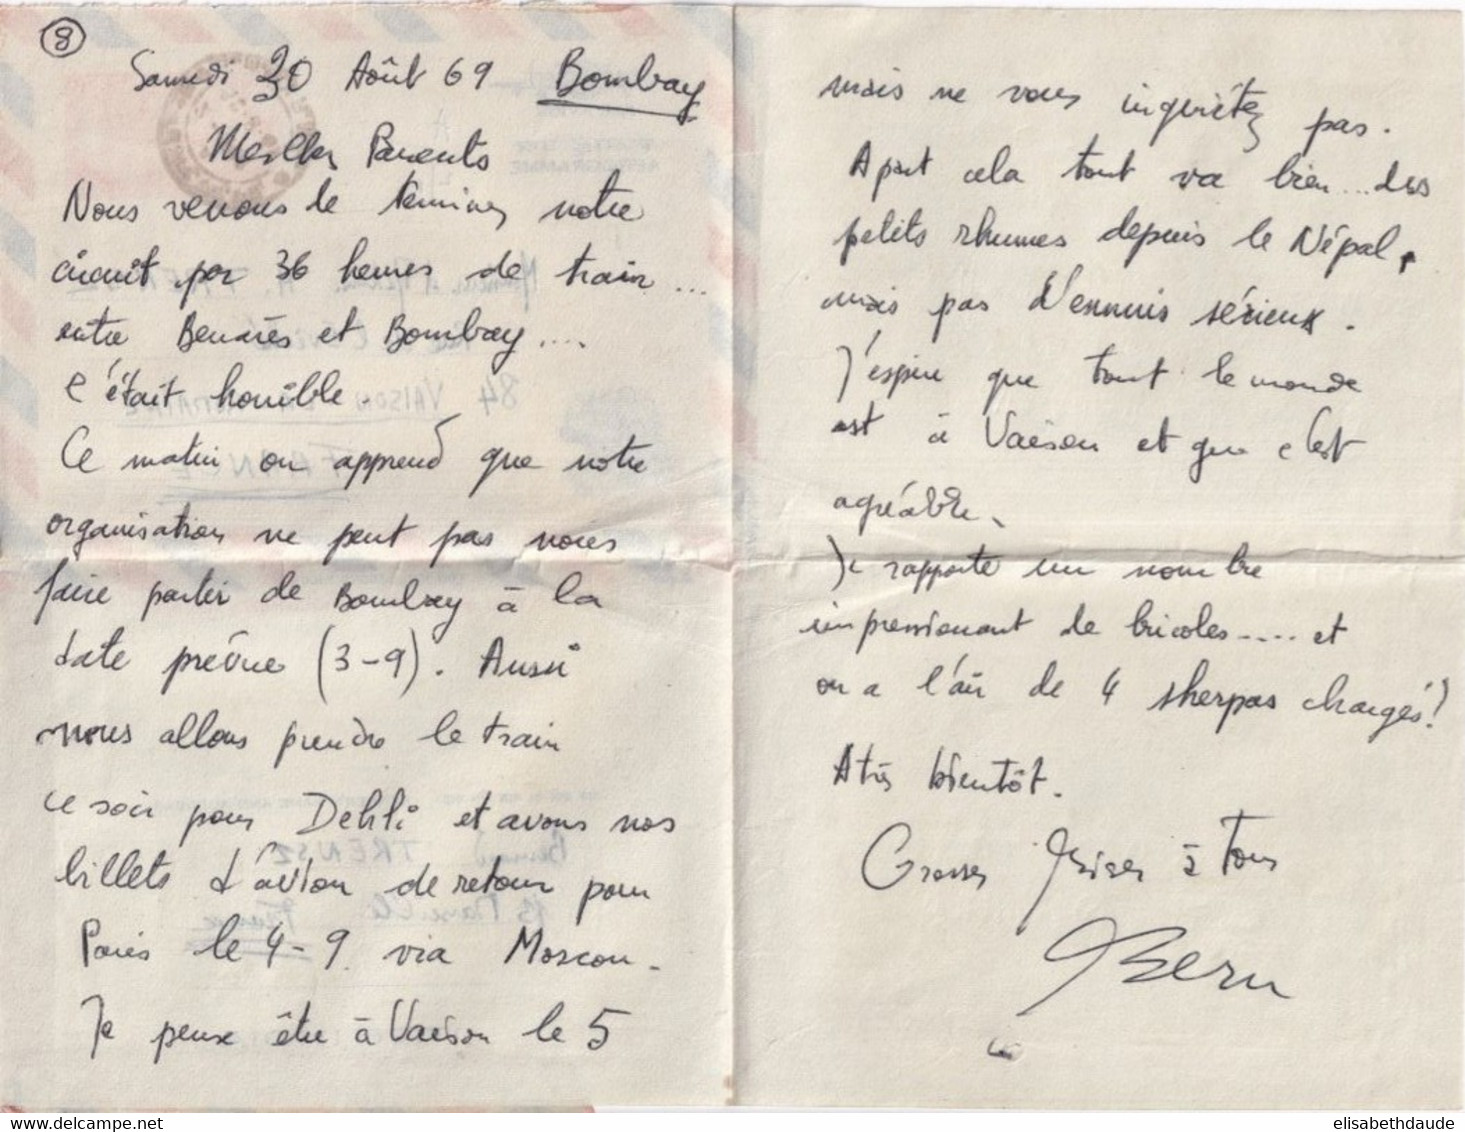 8
Samedi 30 Août 69 Bombay
Mes Chers Parents
Nous venons de terminer notre
circuit par 36 heures de train...
entre Benarès et Bombay....
C'était horrible.
Ce matin on apprend que notre
organisation ne peut pas nous
faire partir de Bombay à la
date prévue (3-9). Aussi
nous allons prendre le train
ce soir pour Dehli et avons nos
billets d'avion de retour pour
Paris le 4-9 via Moscou.
Je peux être à Vaison le 5
mais ne vous inquiétez pas.
A part cela tout va bien... des
petits rhumes depuis le Népal,
mais pas d'ennuis sérieux.
J'espère que tout le monde
est à Vaison et que c'est
agréable.
Je rapporte un nombre
impressionant de bricoles.... et
on a l'air de 4 sherpas chargés!
A très bientôt.
Grosses Bises à Tous
Bern
84 VAISON
FRANCE
TRENSZ
13 Marseille France
elisabethdaude